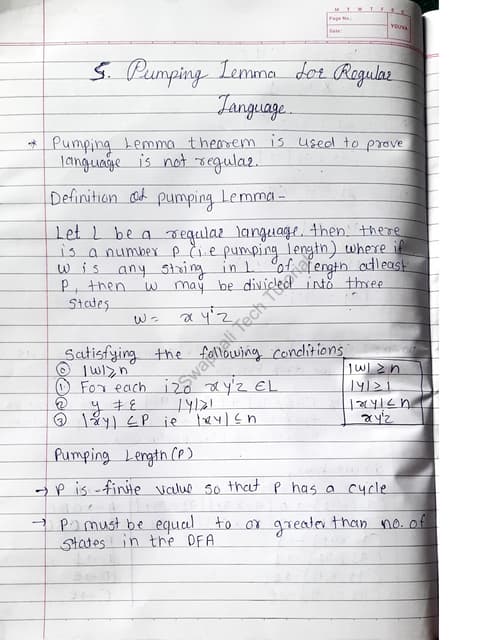 M T W T F S S
Page No.:
Date:
YOUVA
5. Pumping Lemma for Regular
Language.
* Pumping Lemma theorem is used to prove
language is not regular.
Definition of pumping Lemma-
Let L be a regular language, then there
is a number P (i.e pumping length) where if
w is any string in L of length atleast
P, then w may be divided into three
states
w = x yⁱz
Satisfying the following conditions
⓪ |w|≥n
① For each i≥0 x yⁱz ∈L
② y ≠ ε |y|≥1
③ |xy| ≤P ie |xy| ≤ n
|w| ≥ n
|y| ≥ 1
|xy| ≤ n
xyⁱz
Pumping Length(P)
→ P is finite value so that P has a cycle
→ P must be equal to or greater than no. of
states in the DFA
Swapnali Tech Tutorial